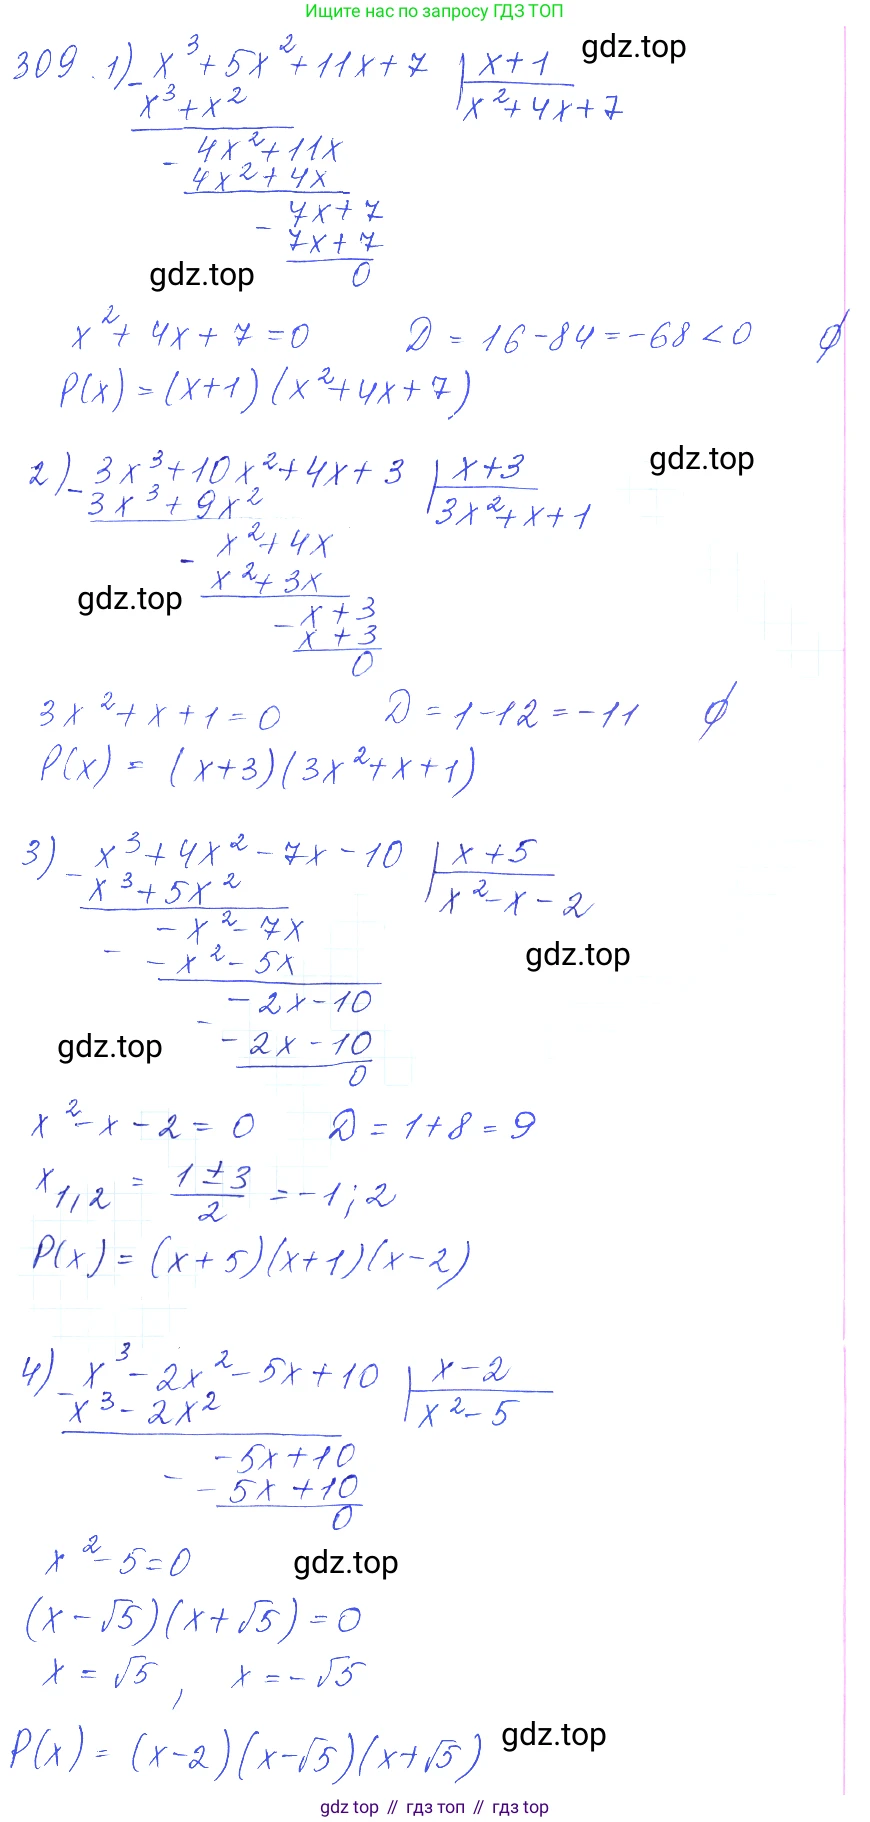 Ищите нас по запросу ГДЗ ТОП
309. 1) - x³ + 5x² + 11x + 7 | x + 1
x³ + x² | x² + 4x + 7
gdz.top
- 4x² + 11x
4x² + 4x
- 7x + 7
7x + 7
0
gdz.top
x² + 4x + 7 = 0 D = 16 - 84 = -68 < 0 ∅
P(x) = (x+1)(x² + 4x + 7)
2) - 3x³ + 10x² + 4x + 3 | x + 3
3x³ + 9x² | 3x² + x + 1
gdz.top
- x² + 4x
x² + 3x
gdz.top
- x + 3
x + 3
0
3x² + x + 1 = 0 D = 1 - 12 = -11 ∅
P(x) = (x+3)(3x² + x + 1)
3) - x³ + 4x² - 7x - 10 | x + 5
x³ + 5x² | x² - x - 2
- - x² - 7x
- x² - 5x
gdz.top
- - 2x - 10
- 2x - 10
0
gdz.top
x² - x - 2 = 0 D = 1 + 8 = 9
x₁,₂ = (1 ± 3)/2 = -1; 2
P(x) = (x+5)(x+1)(x-2)
4) - x³ - 2x² - 5x + 10 | x - 2
x³ - 2x² | x² - 5
- - 5x + 10
- 5x + 10
0
x² - 5 = 0
gdz.top
(x - √5)(x + √5) = 0
x = √5, x = -√5
P(x) = (x-2)(x-√5)(x+√5)
gdz.top
gdz top // гдз топ // гдз.top